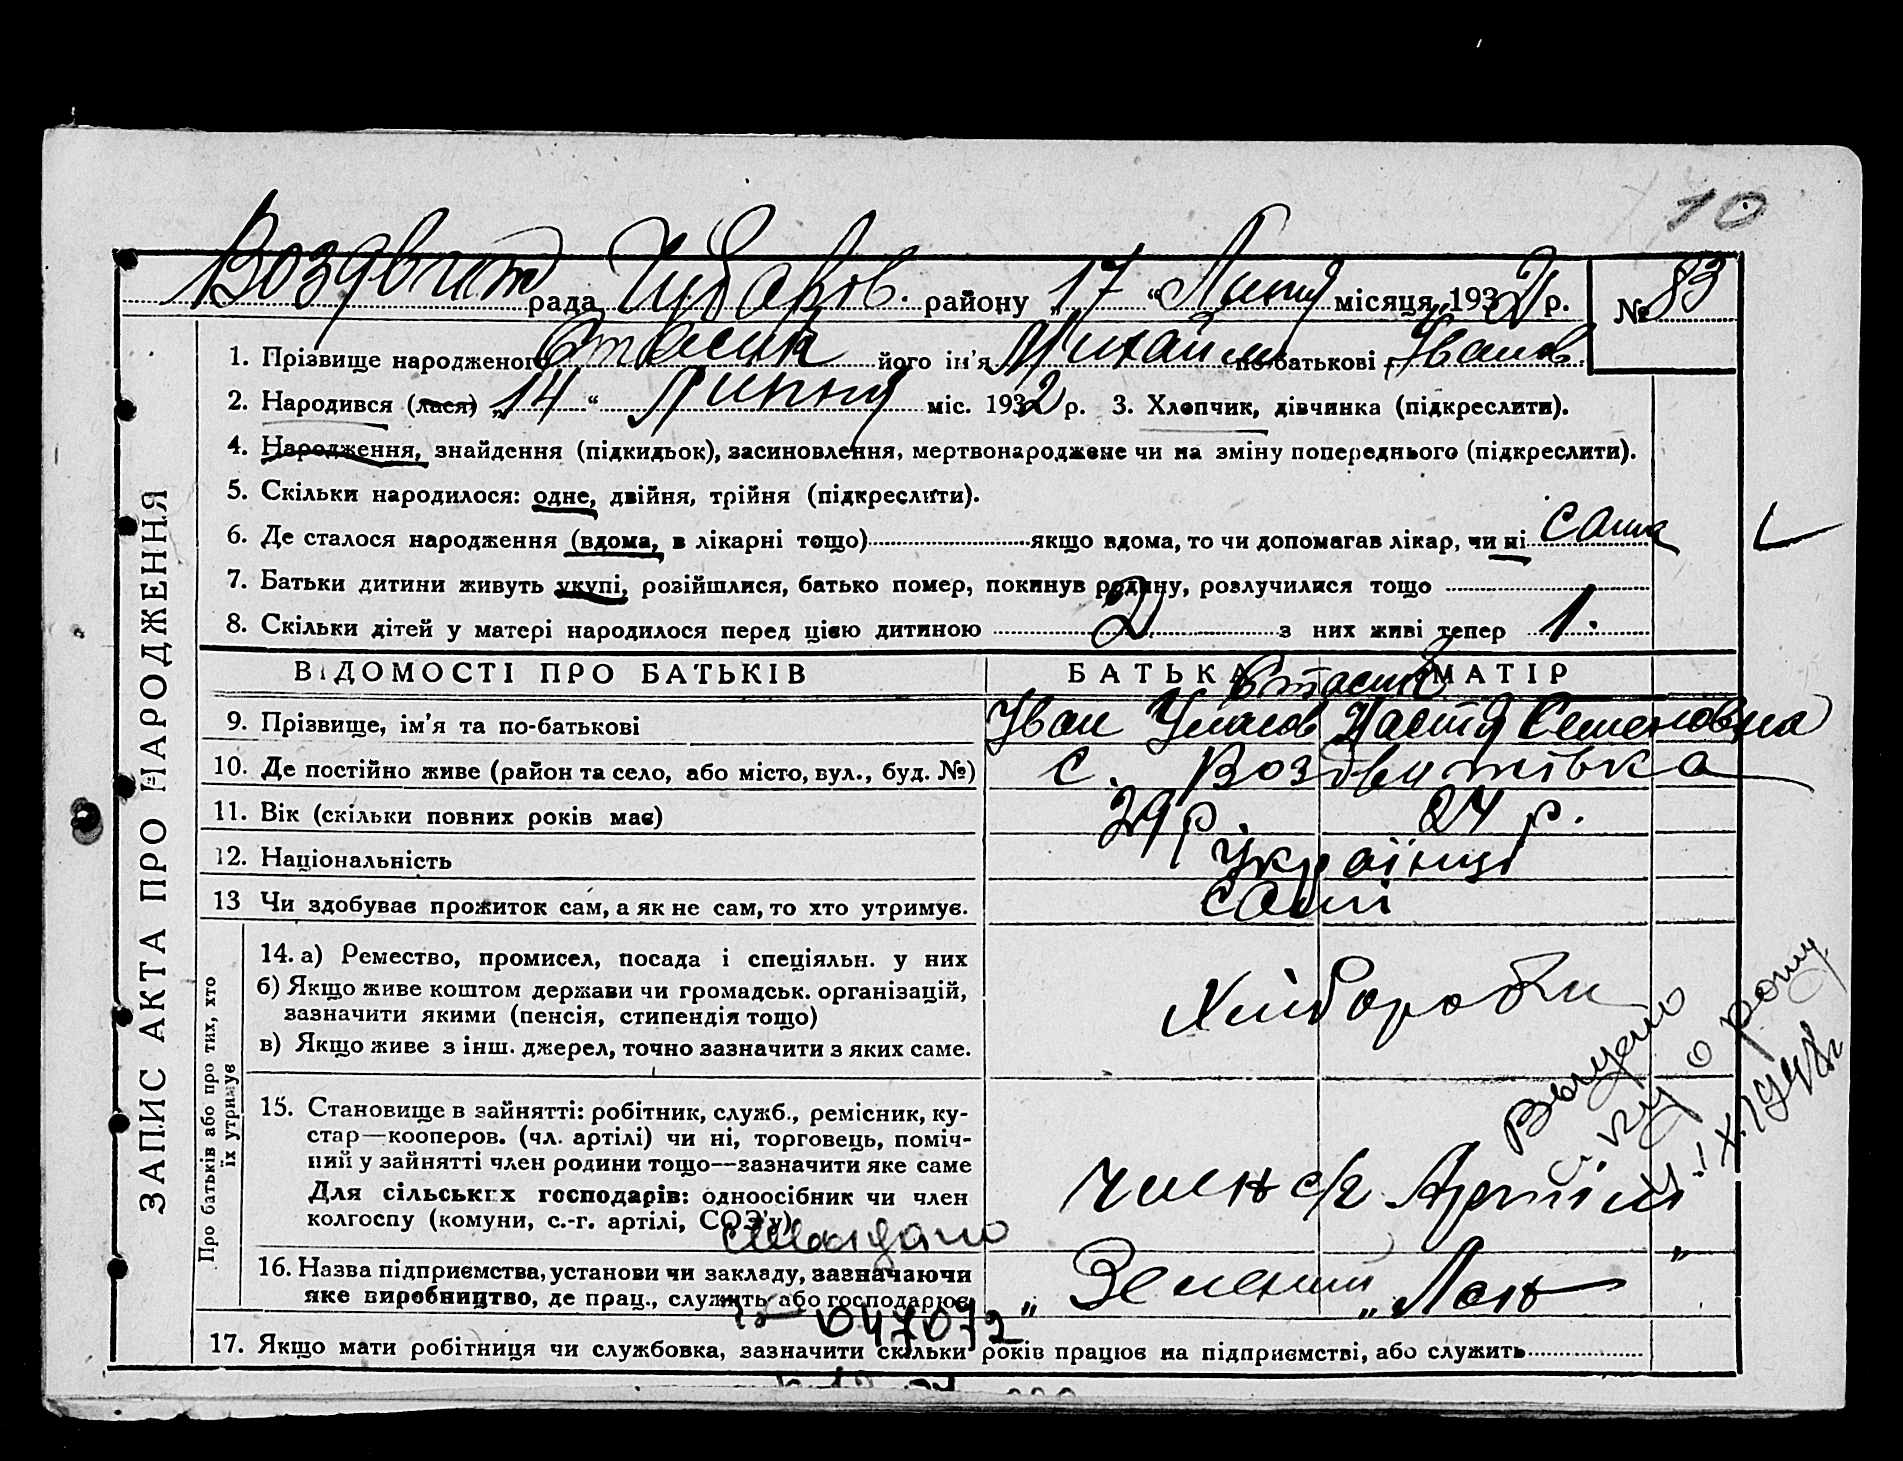 10
Воздвиж рада Чубаров. району „17“ Липня місяця 1932 р. № 83
1. Прізвище народженого Стасик його ім'я Михайло по-батькові Іванов
2. Народився (лася) „14“ Липня міс. 1932 р. 3. Хлопчик, дівчинка (підкреслити).
4. Народження, знайдення (підкидьок), засиновлення, мертвонароджене чи на зміну попереднього (підкреслити).
5. Скільки народилося: одне, двійня, трійня (підкреслити).
6. Де сталося народження (вдома, в лікарні тощо) якщо вдома, то чи допомагав лікар, чи ні сама
7. Батьки дитини живуть укупі, розійшлися, батько помер, покинув родину, розлучилися тощо
8. Скільки дітей у матері народилося перед цією дитиною 2 з них живі тепер 1.
ВІДОМОСТІ ПРО БАТЬКІВ БАТЬКА МАТІР
Стасик
9. Прізвище, ім'я та по-батькові Іван Настя Семеновна
10. Де постійно живе (район та село, або місто, вул., буд. №) с. Воздвижівка
11. Вік (скільки повних років має) 29 р. 24 р.
12. Національність Українці
13 Чи здобував прожиток сам, а як не сам, то хто утримує. самі
ЗАПИС АКТА ПРО НАРОДЖЕННЯ
Про батьків або про тих, хто
їх утримує
14. а) Ремество, промисел, посада і спеціяльн. у них
б) Якщо живе коштом держави чи громадськ. організацій,
зазначити якими (пенсія, стипендія тощо)
в) Якщо живе з інш. джерел, точно зазначити з яких саме.
Хлібороби
15. Становище в зайнятті: робітник, служб., ремісник, ку-
стар—кооперов. (чл. артілі) чи ні, торговець, поміч-
ний у зайнятті член родини тощо—зазначити яке саме
Для сільських господарів: одноосібник чи член
колгоспу (комуни, с.-г. артілі, СОЗ'у)
член с/г Артілі
16. Назва підприємства, установи чи закладу, зазначаючи
яке виробництво, де прац., служить або господарює
„Зелений Лан“
047072
17. Якщо мати робітниця чи службовка, зазначити скільки років працює на підприємстві, або служить